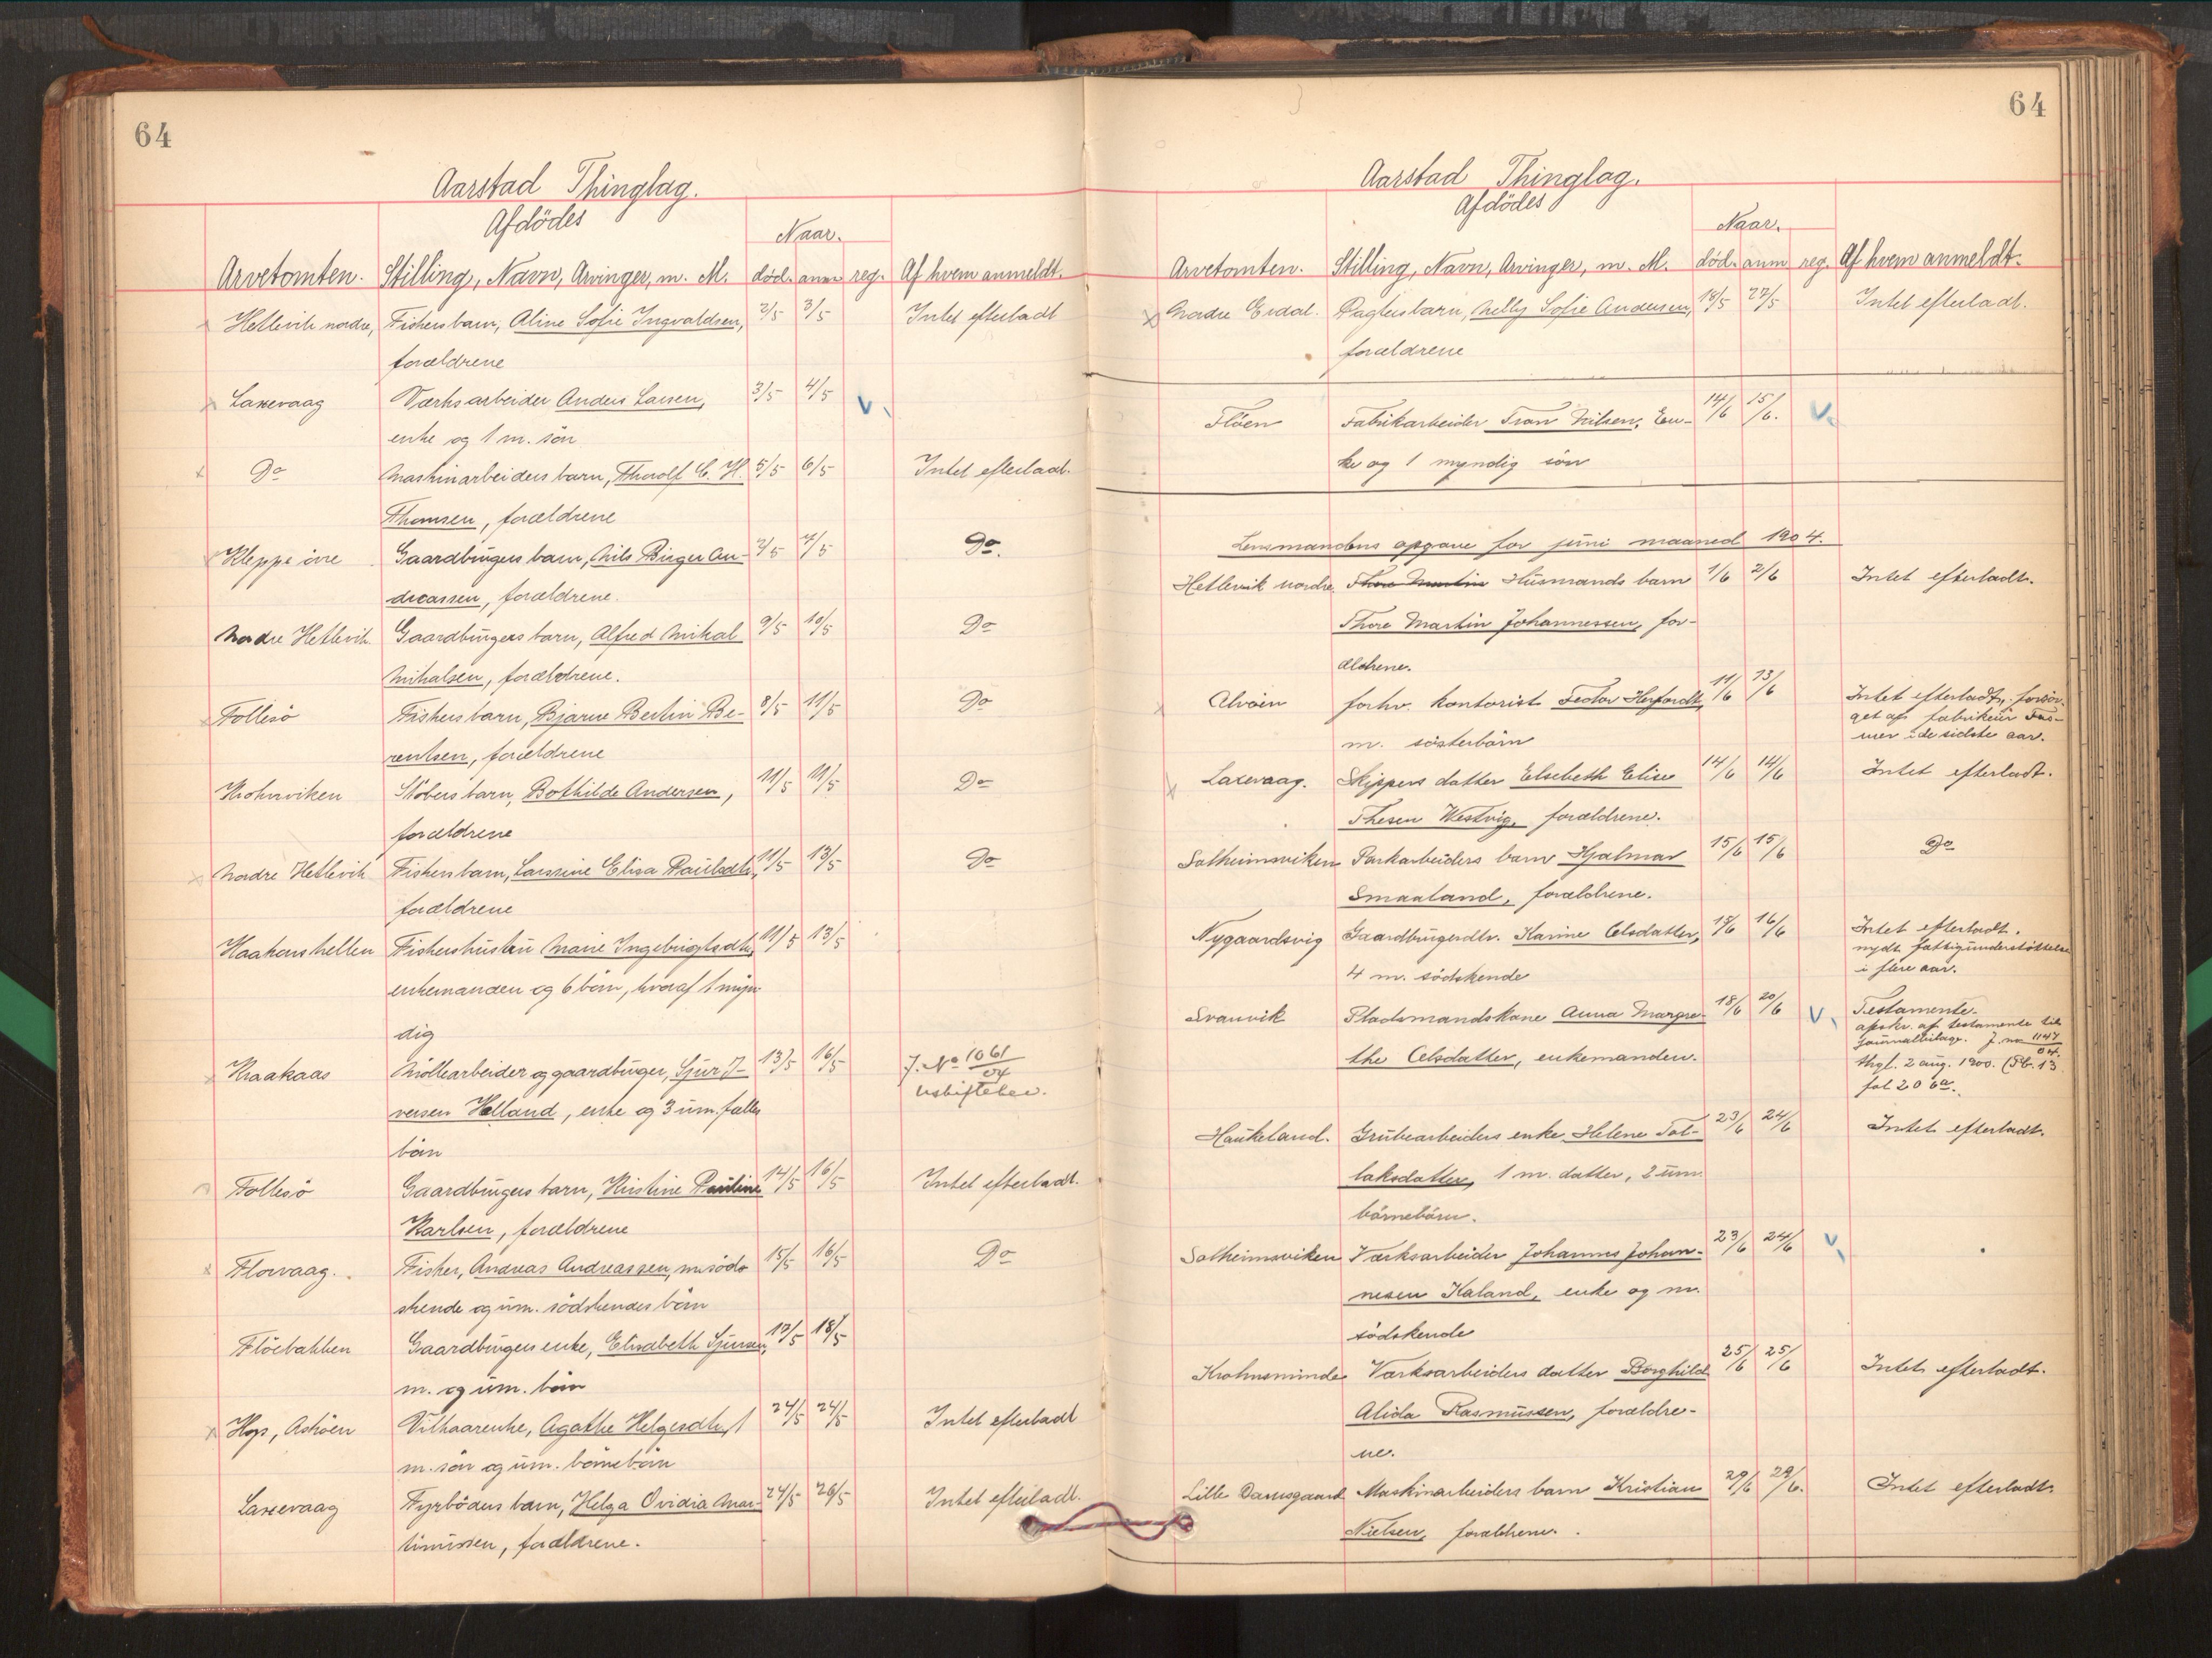 64
Aarstad Thinglag.
Afdödes
Naar.
Arvetomten. Stilling, Navn, Arvinger, m. M. död. anm. reg. Af hvem anmeldt.
Hetlevik nordre, Fiskers barn, Aline Sofie Ingvaldsen, 2/5 3/5 Intet efterladt
forældrene
Laxevaag Værksarbeider Anders Larsen, 3/5 4/5 V.
enke og 1 m. sön
Do Maskinarbeiders barn, Thorolf C. H. 5/5 6/5 Intet efterladt.
Thomsen, forældrene
Kleppe övre Gaardbrugers barn, Nils Birger An- 2/5 7/5 Do.
dreassen, forældrene.
Nordre Hetlevik. Gaardbrugers barn, Alfred Mikal 9/5 10/5 Do
Mikalsen, forældrene.
Follesö Fiskers barn, Bjarne Bertin Be- 8/5 11/5 Do
rentsen, forældrene
Krohnviken Stöbers barn, Bothilde Andersen, 11/5 11/5 Do
forældrene
Nordre Hetlevik Fiskers barn, Larsine Elisa Paulsdtr, 11/5 13/5 Do
forældrene
Haakonshellen Fiskershustru Marie Ingebrigtsdtr, 11/5 13/5
enkemanden og 6 börn, hvoraf 1 myn-
dig
Kraakaas Möllearbeider og gaardbruger, Sjur I- 13/5 16/5 J. No 1061/04
versen Helland, enke og 3 um. fælles uskiftebev.
börn
Follesö Gaardbrugers barn, Kristine Pauline 14/5 16/5 Intet efterladt.
Karlsen, forældrene
Florvaag. Fisker, Andreas Andreassen, m. söds- 15/5 16/5 Do
kende og um. södskendes börn
Flöebakken Gaardbrugers enke, Elisabeth Sjursen, 17/5 18/5
m. og um. börn
Hop, Asköen Vilkaarenke, Agathe Helgesdtr, 1 24/5 24/5 Intet efterladt
m. sön og um. börnebörn
Laxevaag Fyrböders barn, Helga Ovidia Mar- 24/5 26/5 Intet efterladt.
tinussen, forældrene.
64
Aarstad Thinglag.
Afdödes
Naar.
Arvetomten. Stilling, Navn, Arvinger, m. M. död. anm. reg. Af hvem anmeldt.
Nordre Erdal. Pagters barn, Nelly Sofie Andersen, 18/5 27/5 Intet efterladt.
forældrene
Flöen Fabrikarbeider Nilsen, En- 14/6 15/6. V.
ke og 1 myndig sön
Lensmandens opgave for juni maaned 1904.
Hetlevik nordre. Thore Martin Husmands barn 1/6 2/6 Intet efterladt.
Thore Martin Johannessen, for-
ældrene.
Alvöen forhv. kontorist Feodor Herfordt, 11/6 13/6 Intet efterladt, forsör-
m. sösterbörn get af fabrikeier Fas-
mer i de sidste aar.
Laxevaag. Skippers datter Elsebeth Elise 14/6 14/6 Intet efterladt.
Thesen Westvig, forældrene.
Solheimsviken Parkarbeiders barn Hjalmar 15/6 15/6 Do
Smaaland, forældrene.
Nygaardsvig Gaardbrugerdtr. Karine Olsdatter, 15/6 16/6 Intet efterladt.
4 m. södskende nydt fattigunderstöttelse
i flere aar.
Svanvik Pladsmandskone Anna Margre- 18/6 20/6 V. Testamente.
the Olsdatter, enkemanden. afskr. af testamente til
journalbilage. J. no 1147/04.
thgl. 2 aug. 1900. (Pb. 13
fol 206a.
Haukeland. Grubearbeiders enke Helene Tol- 23/6 24/6 Intet efterladt.
laksdatter, 1 m. datter, 2 um.
börnebörn.
Solheimsviken Værksarbeider Johannes Johan- 23/6 24/6 V.
nesen Kaland, enke og m.
södskende
Krohnsminde Værksarbeiders datter Borghild 25/6 25/6 Intet efterladt.
Alida Rasmussen, forældre-
ne.
Lille Damsgaard Maskinarbeiders barn Kristian 29/6 29/6. Intet efterladt.
Nielsen, forældrene.